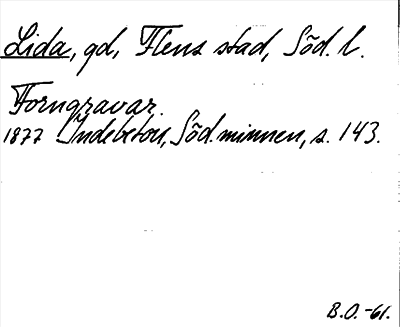 Lida, gd, Flens stad, Söd. l.
Forngravar.
1877 Indebetou, Söd. minnen, s. 143.
B.O.-61.